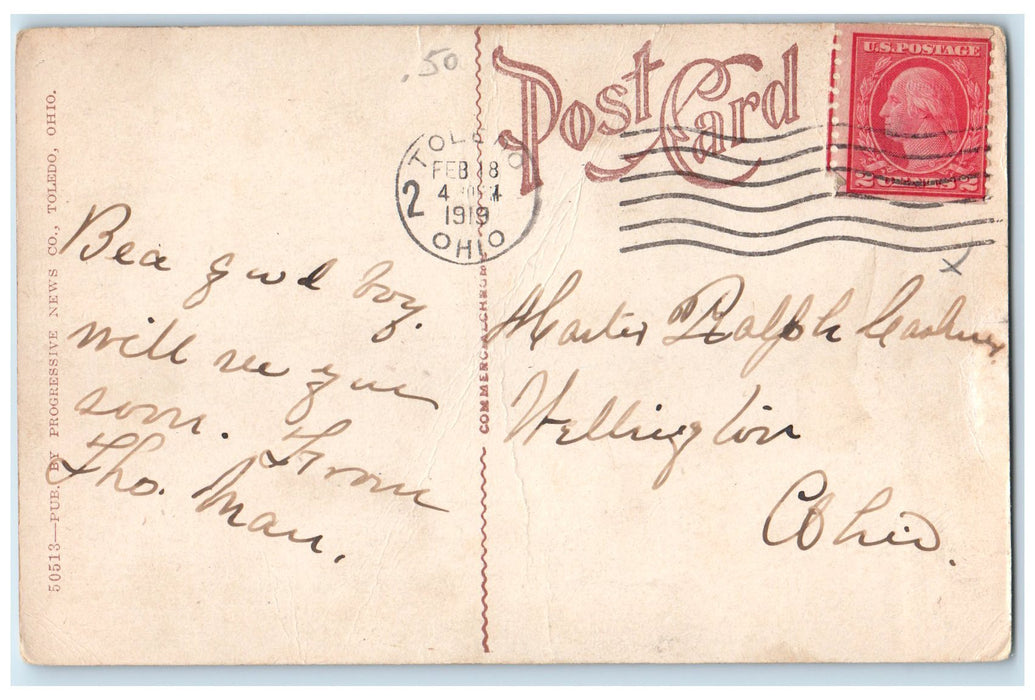 .50
Post Card
U.S. POSTAGE
2 CENTS 2
TOLEDO
FEB 8
4
1919
OHIO
2
50513—PUB. BY PROGRESSIVE NEWS CO., TOLEDO, OHIO.
COMMERCIALCHROM
Be a good boy.
will see you
soon. From
Tho. Man.
Master Ralph
Wellington
Ohio.
X